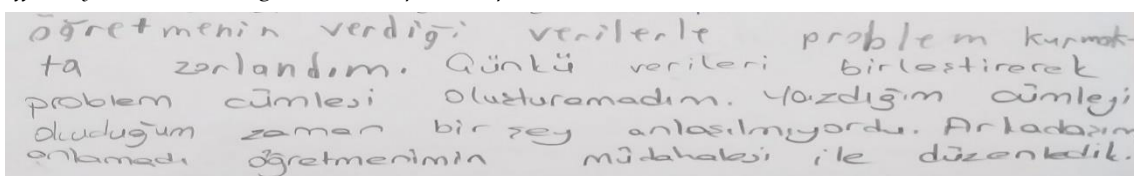 öğretmenin verdiği verilerle problem kurmak-
ta zorlandım. Çünkü verileri birleştirerek
problem cümlesi oluşturamadım. Yazdığım cümleyi
okuduğum zaman bir şey anlaşılmıyordu. Arkadaşım
anlamadı öğretmenimin müdahalesi ile düzenledik.